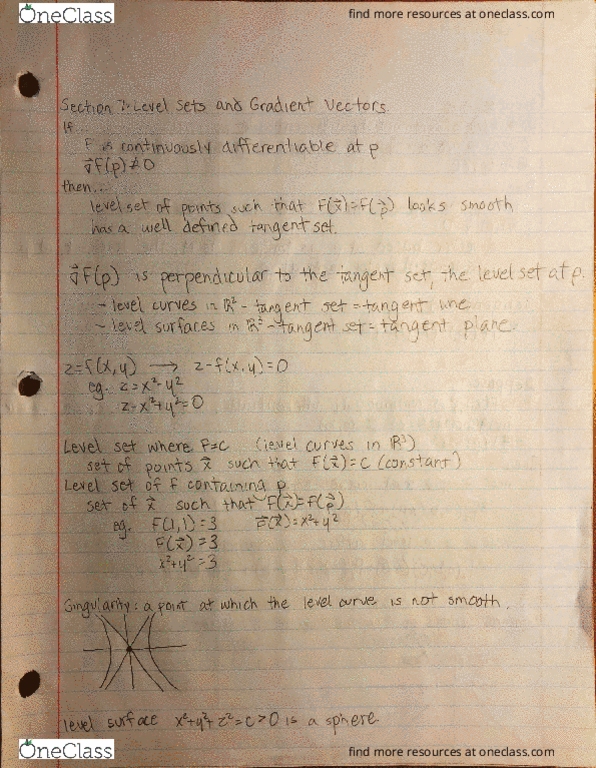 OneClass
find more resources at oneclass.com
Section 7: Level Sets and Gradient Vectors
If...
F is continuously differentiable at p
∇⃗F(p) ≠ 0
then...
level set of points such that F(x⃗)=F(p⃗) looks smooth
has a well defined tangent set.
∇⃗F(p) is perpendicular to the tangent set, the level set at p.
- level curves in ℝ² - tangent set = tangent line
- level surfaces in ℝ³ - tangent set = tangent plane.
z=f(x,y) → z-f(x,y)=0
eg. z=x²-y²
z-x²+y²=0
Level set where F=C (level curves in ℝ³)
set of points x⃗ such that F(x⃗)=C (constant)
Level set of f containing p
set of x⃗ such that F(x⃗)=F(p⃗)
eg. F(1,1)=3 F(x⃗)=x²+y²
F(x⃗)=3
x²+y²=3
Singularity: a point at which the level curve is not smooth.
level surface x²+y²+z²=C>0 is a sphere
OneClass
find more resources at oneclass.com